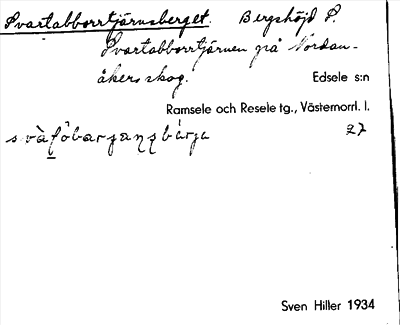 Svartabborrtjärnsberget. Bergshöjd P.
Svartabborrtjärnen på Nordan-
åkers skog. Edsele s:n
Ramsele och Resele tg., Västernorrl. l.
27
Sven Hiller 1934